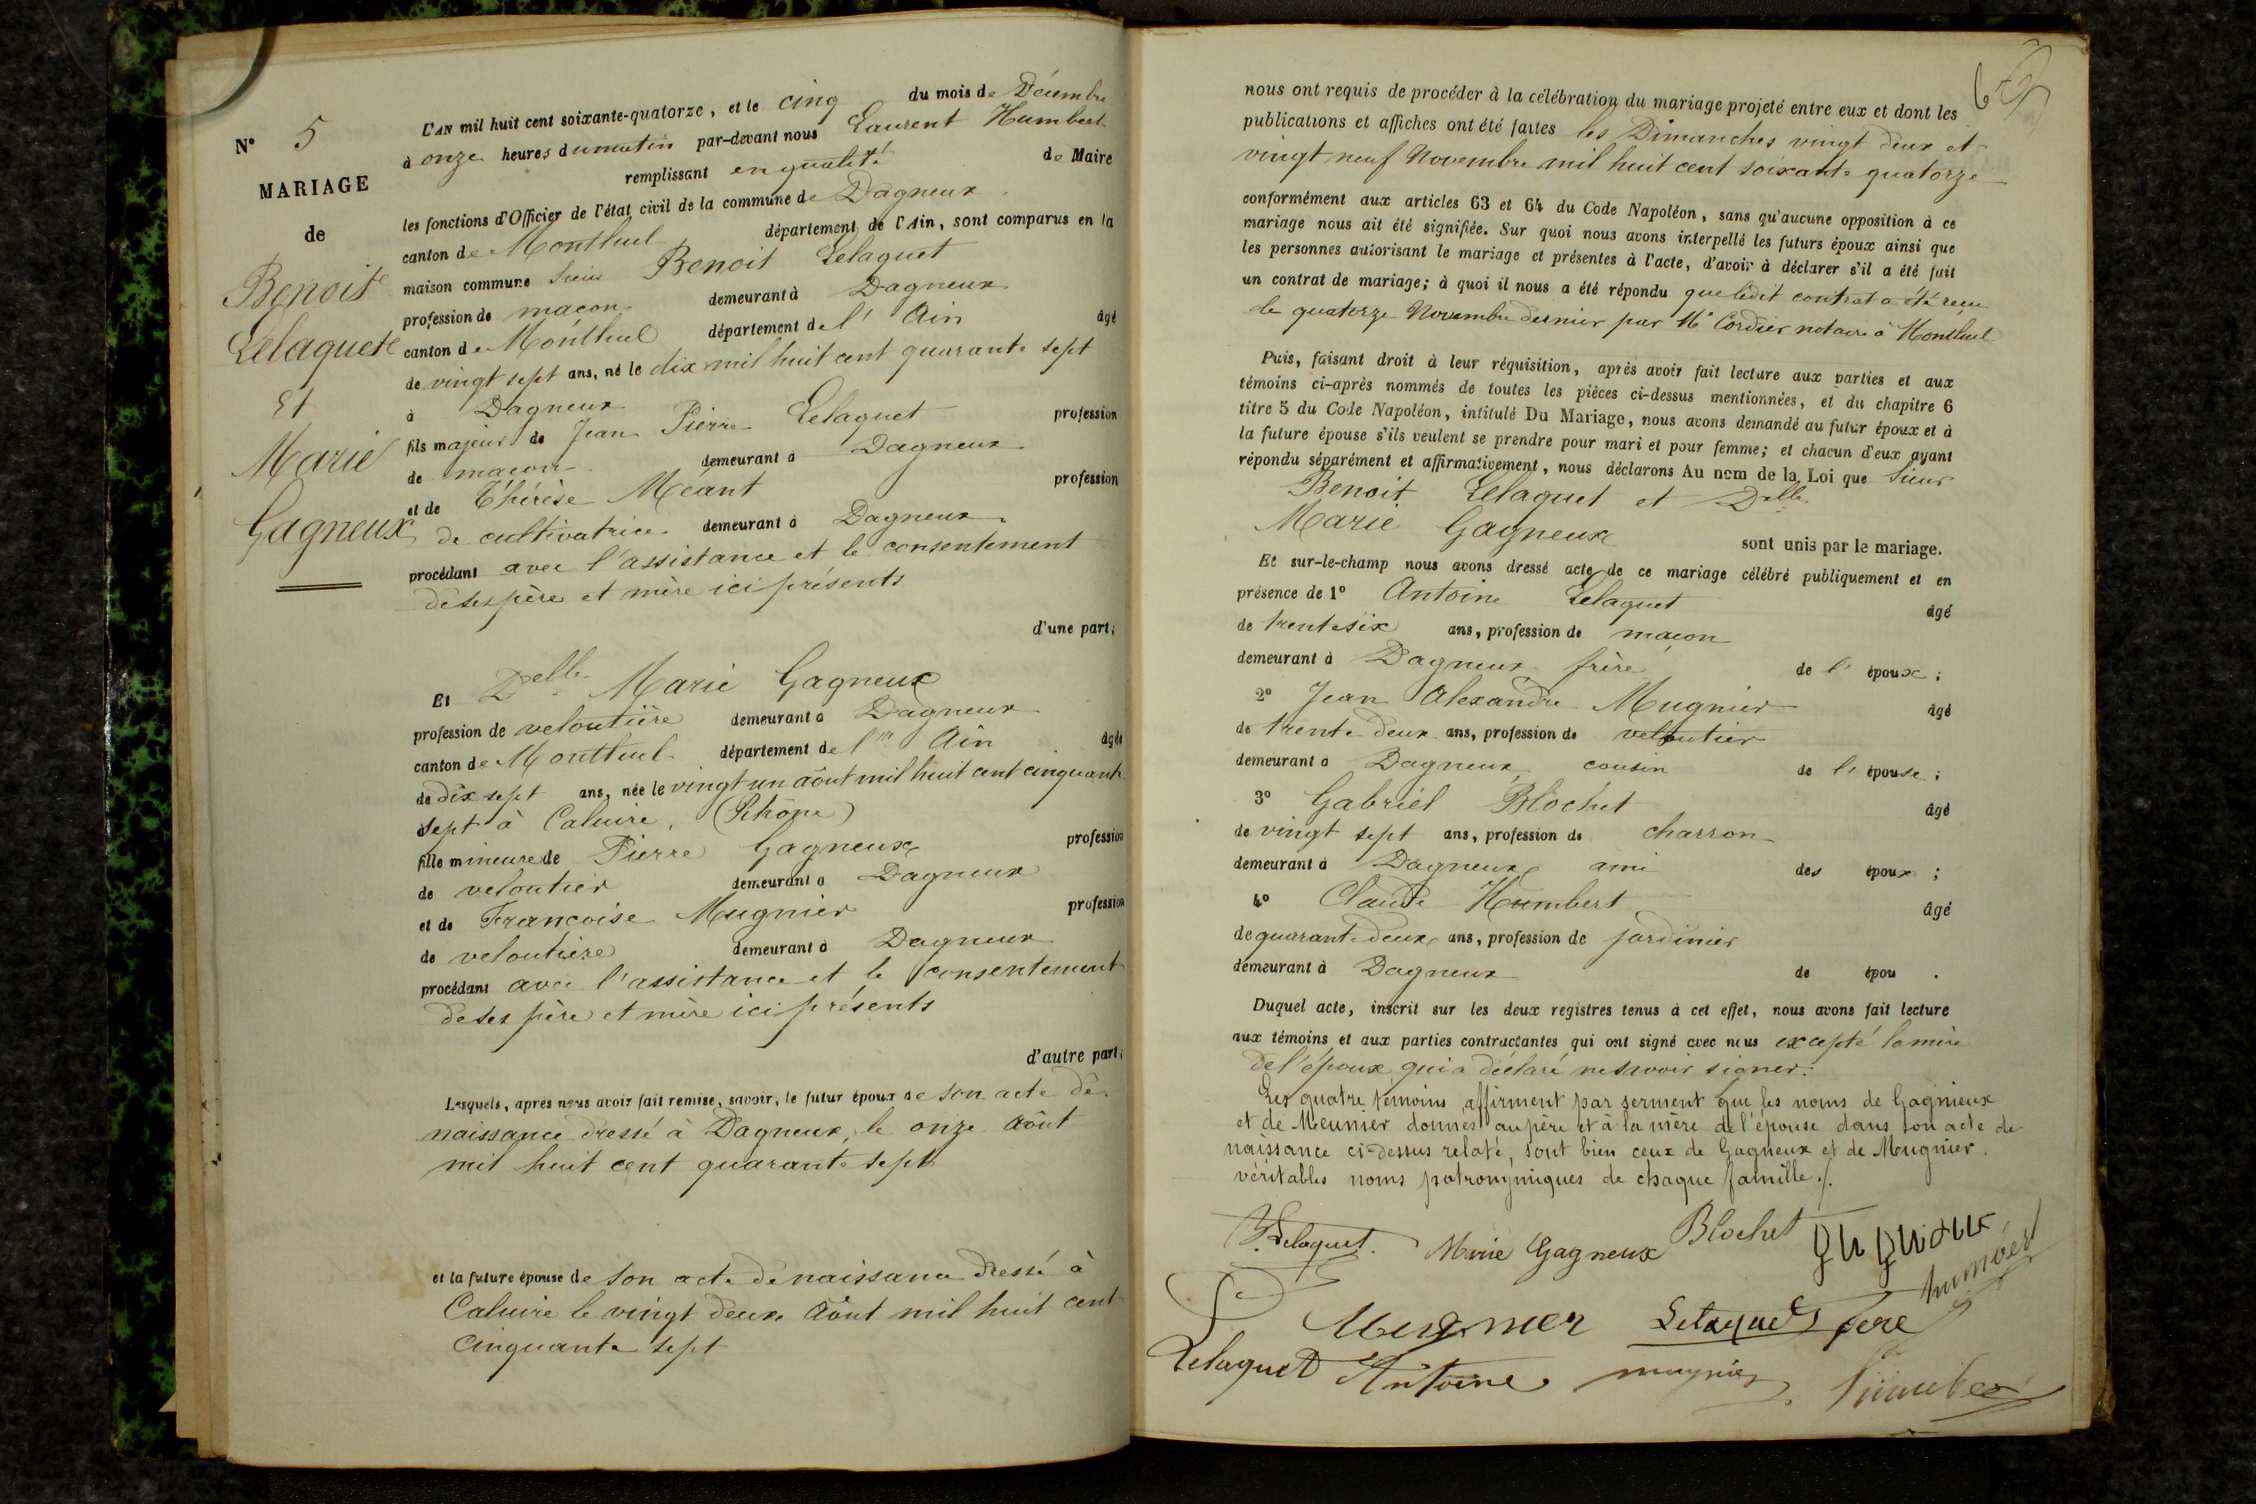 N° 5
MARIAGE
de
Benoit
Lelaquet
Et
Marie
Gagneux
L'AN mil huit cent soixante-quatorze, et le cinq du mois de Décembre
à onze heures du matin par-devant nous Laurent Humbert
remplissant en qualité de Maire
les fonctions d'Officier de l'état civil de la commune de Dagneux
canton de Montluel département de l'Ain, sont comparus en la
maison commune Sieur Benoit Lelaquet
profession de maçon demeurant à Dagneux
canton de Montluel département de l' Ain âgé
de vingt sept ans, né le dix mil huit cent quarante sept
à Dagneux
fils majeur de Jean Pierre Lelaquet profession
de maçon demeurant à Dagneux
et de Thérèse Méant profession
de cultivatrice demeurant à Dagneux
procédant avec l'assistance et le consentement
de ses père et mère ici présents
d'une part;
Et Delle Marie Gagneux
profession de veloutière demeurant à Dagneux
canton de Montluel département de l' Ain âgée
de dix sept ans, née le vingt un août mil huit cent cinquante
sept à Caluire, (Rhône)
fille mineure de Pierre Gagneux profession
de veloutier demeurant à Dagneux
et de Françoise Mugnier profession
de veloutière demeurant à Dagneux
procédant avec l'assistance et le consentement
de ses père et mère ici présents
d'autre part;
Lesquels, après nous avoir fait remise, savoir, le futur époux de son acte de
naissance dressé à Dagneux, le onze août
mil huit cent quarante sept
et la future épouse de son acte de naissance dressé à
Caluire le vingt deux août mil huit cent
cinquante sept
nous ont requis de procéder à la célébration du mariage projeté entre eux et dont les
publications et affiches ont été faites les Dimanches vingt deux et
vingt neuf Novembre mil huit cent soixante quatorze
conformément aux articles 63 et 64 du Code Napoléon, sans qu'aucune opposition à ce
mariage nous ait été signifiée. Sur quoi nous avons interpellé les futurs époux ainsi que
les personnes autorisant le mariage et présentes à l'acte, d'avoir à déclarer s'il a été fait
un contrat de mariage; à quoi il nous a été répondu que ledit contrat a été reçu
le quatorze Novembre dernier par Me Cordier notaire à Montluel
Puis, faisant droit à leur réquisition, après avoir fait lecture aux parties et aux
témoins ci-après nommés de toutes les pièces ci-dessus mentionnées, et du chapitre 6
titre 5 du Code Napoléon, intitulé Du Mariage, nous avons demandé au futur époux et à
la future épouse s'ils veulent se prendre pour mari et pour femme; et chacun d'eux ayant
répondu séparément et affirmativement, nous déclarons Au nom de la Loi que Sieur
Benoit Lelaquet et Delle
Marie Gagneux sont unis par le mariage.
Et sur-le-champ nous avons dressé acte de ce mariage célébré publiquement et en
présence de 1° Antoine Lelaquet âgé
de trente six ans, profession de maçon
demeurant à Dagneux frère de l' époux;
2° Jean Alexandre Mugnier âgé
de trente deux ans, profession de veloutier
demeurant à Dagneux cousin de l' épouse;
3° Gabriel Blochet âgé
de vingt sept ans, profession de charron
demeurant à Dagneux ami des époux;
4° Claude Humbert âgé
de quarante deux ans, profession de jardinier
demeurant à Dagneux de épou .
Duquel acte, inscrit sur les deux registres tenus à cet effet, nous avons fait lecture
aux témoins et aux parties contractantes qui ont signé avec nous excepté la mère
de l'époux qui a déclaré ne savoir signer.
Les quatre témoins affirment par serment que les noms de Gagnieux
et de Meunier donnés au père et à la mère de l'épouse dans son acte de
naissance ci-dessus relaté, sont bien ceux de Gagneux et de Mugnier
véritables noms patronymiques de chaque famille./.
B. Lelaquet Marie Gagneux Blochet gagneux humbert
Mugnier Lelaquet père
Lelaquet Antoine mugnier Humbert